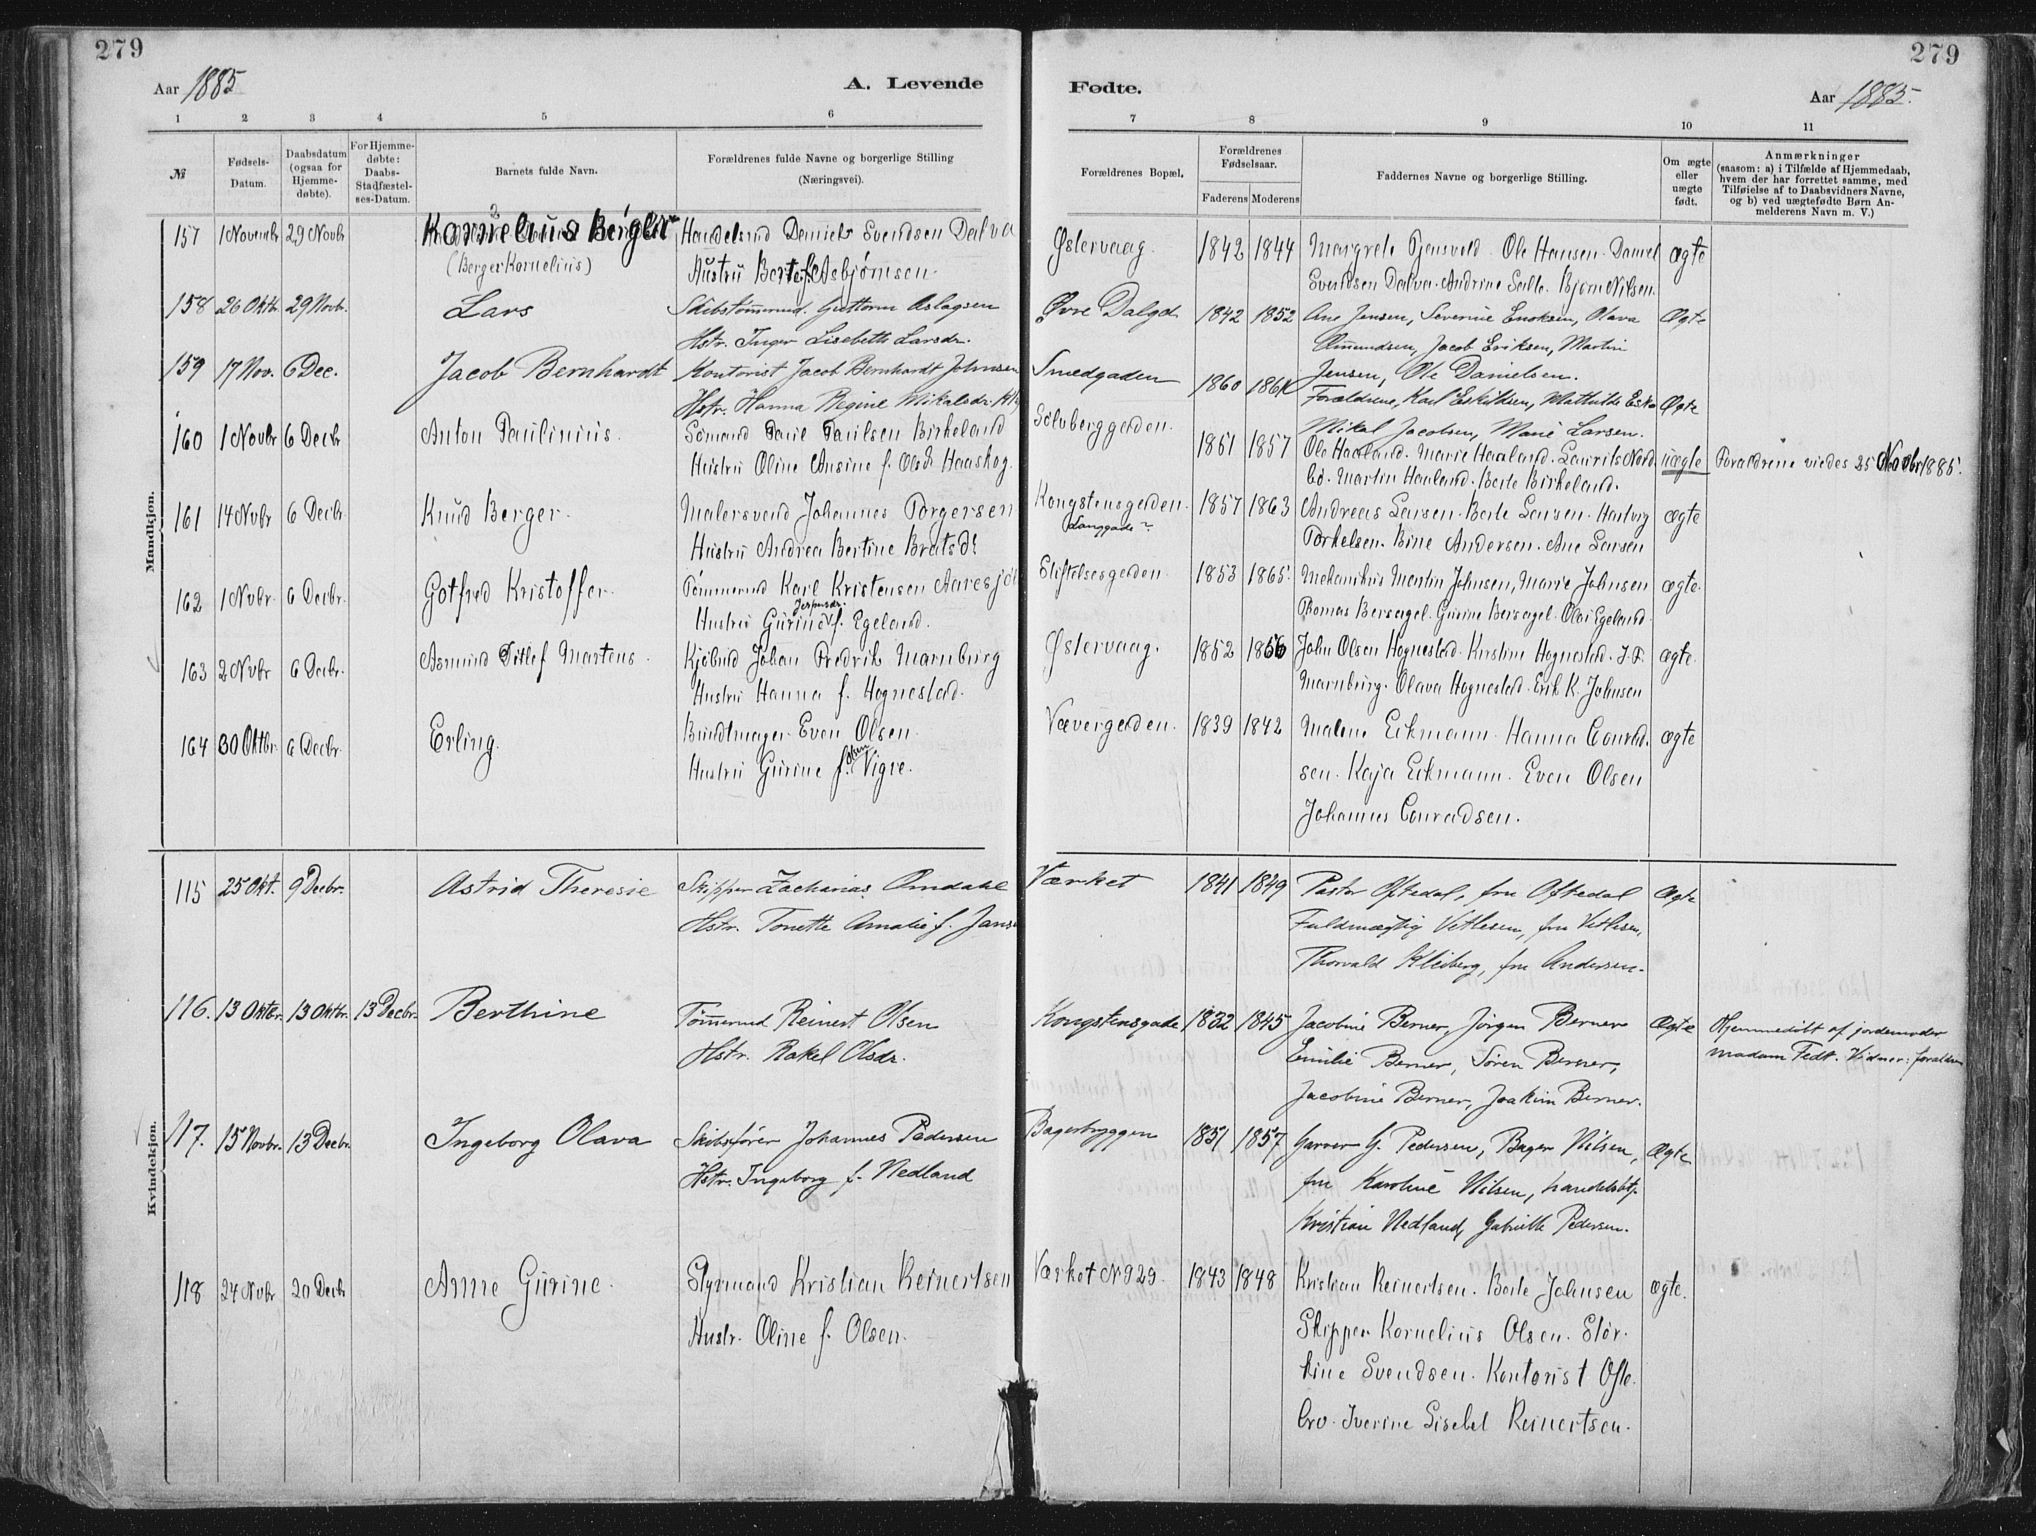 279
279
Aar 1885
A. Levende
Fødte.
Aar 1885.
1 2 3 4 5 6 7 8 9 10 11
№
Fødsels-Datum.
Daabsdatum (ogsaa for Hjemmedøbte).
For Hjemmedøbte: Daabs-Stadfæstelses-Datum.
Barnets fulde Navn.
Forældrenes fulde Navne og borgerlige Stilling (Næringsvei).
Forældrenes Bopæl.
Forældrenes Fødselsaar.
Faderens Moderens
Faddernes Navne og borgerlige Stilling.
Om ægte eller uægte født.
Anmærkninger
(saasom: a) i Tilfælde af Hjemmedaab, hvem der har forrettet samme, med Tilføielse af to Daabsvidners Navne, og b) ved uægtefødte Børn Anmelderens Navn m. V.)
Mandkjøn.
157 1 Novembr 29 Novbr Kornelius Berger Handelsmd Daniels Svendsen Dalva Østervaag. 1842 1844 Margrete Tjensvold. Ole Hansen. Daniel ægte
(Berger Kornelius) Hustru Berte f. Asbjørnsen. Svendsen Dalva. Andrine Salte. Bjørn Nilsen.
158 26 Oktbr. 29 Novbr. Lars Skibstømmermd. Guttorm Aslagsen Øvre Dalgd. 1842 1852 Ane Jensen, Severine Enoksen, Olava Ægte
Hstr. Inger Lisebeth Larsdr. Amundsen, Jacob Eriksen, Martin
Jensen, Ole Danielsen.
159 17 Nov. 6 Dec. Jacob Bernhardt Kontorist Jacob Bernhardt Johnsen Smedgaden 1860 1861 Forældrene, Karl Eskildsen, Mathilde Ægte
Hstr. Hanna Regine Mikalsdr. Mikal Jacobsen, Marie Larsen.
160 1 Novbr 6 Decbr Anton Paulinius. Sömand Paul Paulsen Birkeland Sölvberggaden. 1861 1857 Ole Haaland. Marie Haaland. Laurits Nord- uægte Forældrene viedes 25 Novbr 1885.
Hustru Oline Ansine f. Olsd. Haaskog. bö. Martin Haaland. Berte Birkeland.
161 14 Nvbr 6 Decbr. Knud Berger. Malersvend Johannes Torgersen Kongstensgaden. 1857 1863 Andreas Larsen. Berte Larsen. Hartvig ægte
Langgade Hustru Andrea Bertine Bratsdr. Torkelsen. Bine Andersen. Ane Larsen
162 1 Nvbr. 6 Decbr. Gotfred Kristoffer. Tömmermd Karl Kristensen Aaresjöl Stiftelsesgaden. 1853 1865. Mekanikus Martin Johnsen, Marie Johnsen ægte.
Jespersdr.
Hustru Gurine f. Egeland. Thomas Bersagel. Gurine Bersagel. Olai Egeland.
163 2 Nvbr 6 Decbr. Asmund Ditlef Martens. Kjöbmd Johan Fredrik Marnburg Østervaag. 1852 1856 John Olsen Hognestad. Kirstine Hognestad. J. F. ægte.
Hustru Hanna f. Hognestad. Marnburg. Olava Hognestad. Erik K. Johnsen
164 30 Oktbr. 6 Decbr. Erling. Bundtmager Even Olsen. Vævergaden. 1839 1842 Malene Eckmann. Hanna Conrad- ægte
Olsen
Hustru Gurine f. Vigre. sen. Kaja Eckmann. Even Olsen
Johannes Conradsen.
Kvindekjøn.
115 25 Okt. 9 Decbr. Astrid Theresie Skipper Zacharias Omdahl Værket 1841 1849 Pastor Oftedal, fru Oftedal Ægte
Hstr. Tonette Amalie f. Jans Fuldmægtig Vetlesen, fru Vetlesen,
Thorvald Kleiberg, fru Andersen.
116. 13 Oktbr. 13 Oktbr. 13 Decbr. Berthine Tömmermd Reinert Olsen Kongstensgade 1832 1845 Jacobine Berner, Jörgen Berner Ægte Hjemmedöbt af jordemoder
Hstr. Rakel Olsdr. Emilie Berner, Sören Berner, madam Fedt. Vidner: forældrene
Jacobine Berner, Joakim Berner.
117. 15 Novbr. 13 Decbr. Ingeborg Olava Skibsförer Johannes Pedersen Bagerbryggen 1851 1857 Garver G. Pedersen, Bager Nilsen, Ægte
Hstr. Ingeborg f. Nedland fru Karoline Nilsen, handelsbtj.
Kristian Nedland, Gabrielle Pedersen.
118 24 Nvbr 20 Decbr Anne Gurine. Styrmand Kristian Reinertsen Værket № 929. 1843 1848 Kristian Reinertsen. Berte Johnsen ægte.
Hustr. Oline f. Olsen. Skipper Kornelius Olsen. Stör-
kine Svendsen. Kontorist Ofte-
bro. Iverine Lisebet Reinertsen.